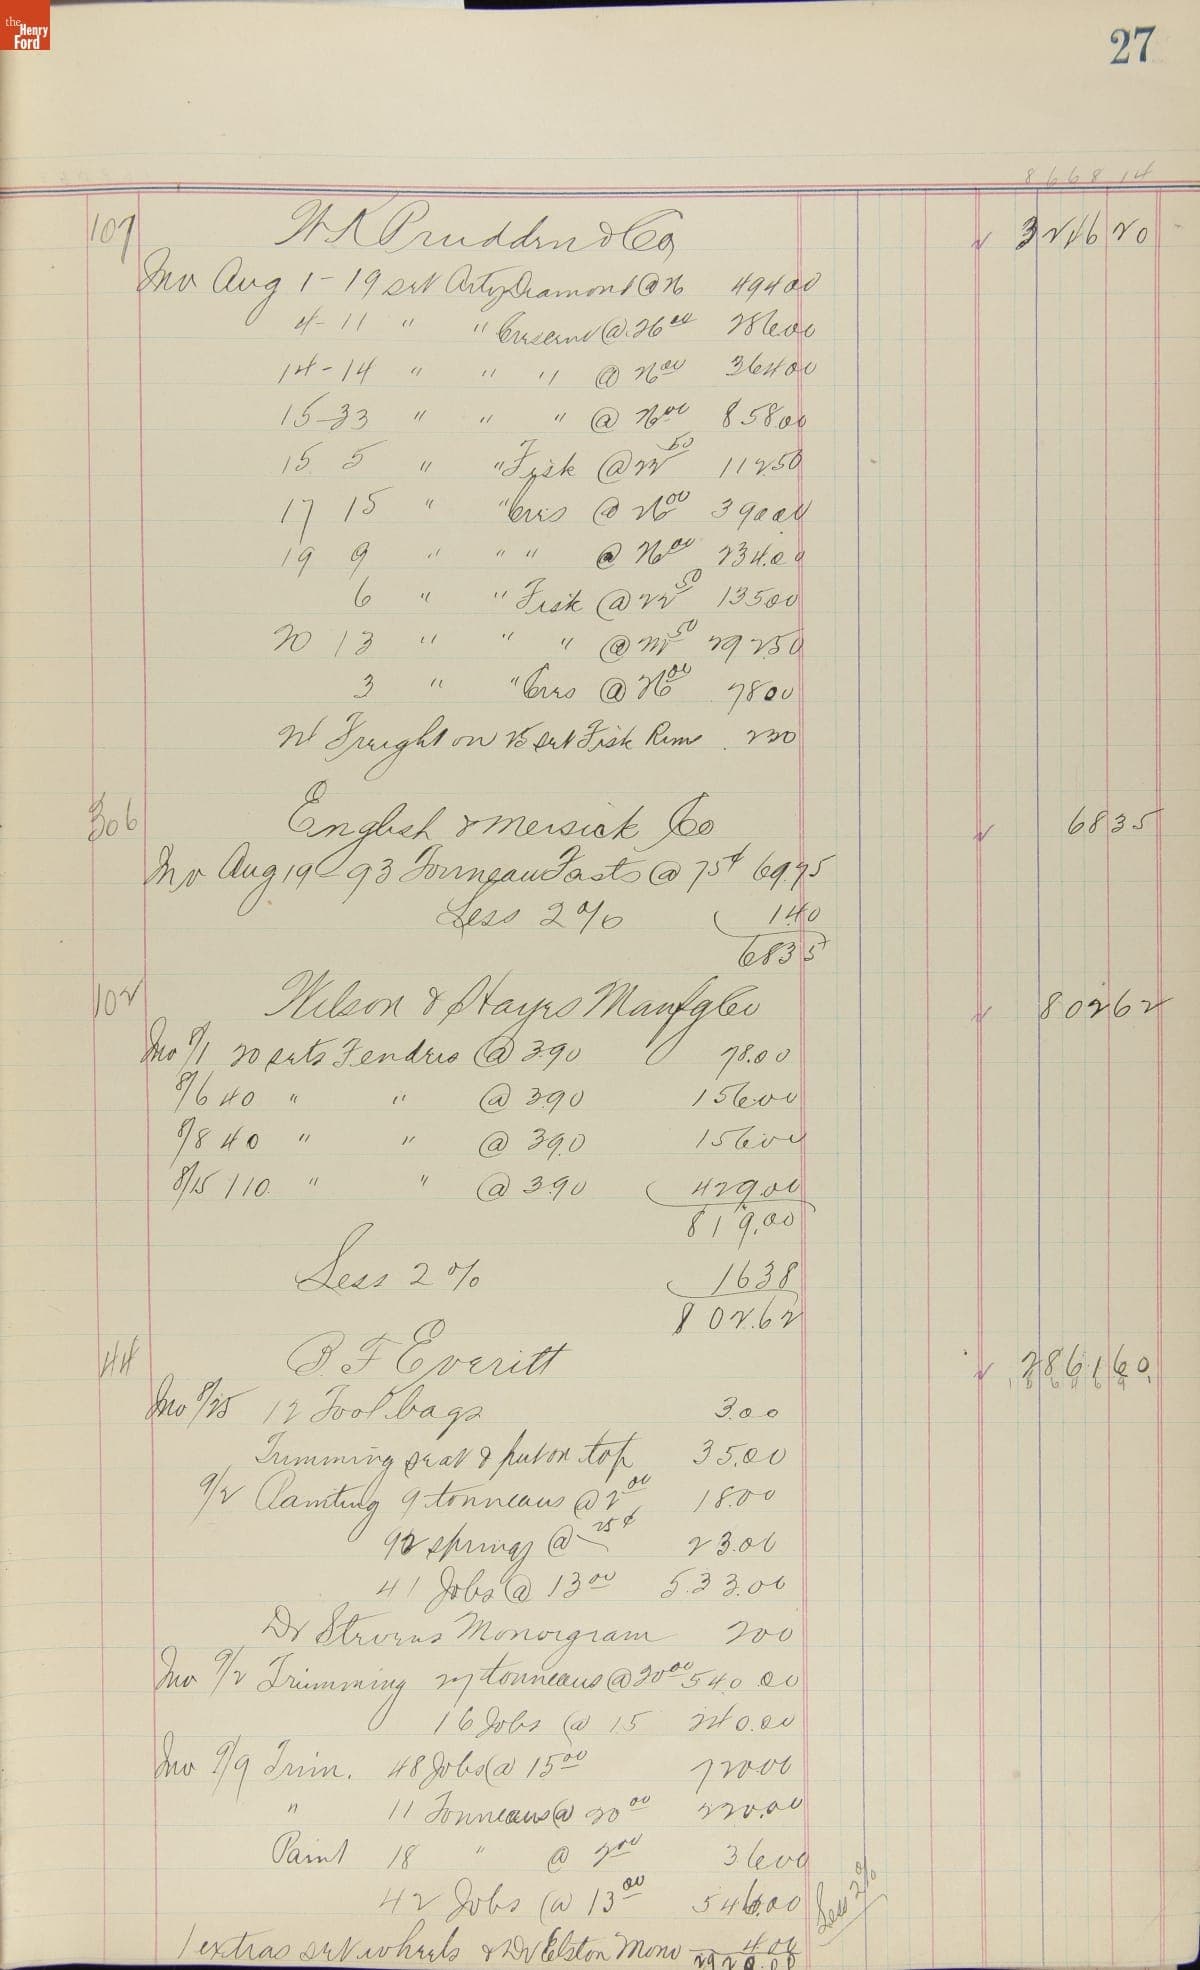 the Henry Ford
27
8668 14
107 W K Prudden & Co 3246 20
Inv Aug 1 - 19 set Arty Diamond @ 26 494 00
4 - 11 " " Crescent @ 26 00 286.00
14 - 14 " " " @ 26 00 364 00
15 - 33 " " " @ 26 00 858 00
15 5 " " Fisk @ 22 50 112 50
17 15 " " Cres @ 26 00 390 00
19 9 " " " @ 26 00 234.00
6 " " Fisk @ 22 50 135 00
20 13 " " " @ 22 50 292 50
3 " " Cres @ 26 00 78 00
Freight on 15 set Fisk Rims 2 20
306 English & Mersick Co 68 35
Inv Aug 19 - 93 Tonneau Fasts @ 75¢ 69.75
Less 2% 1.40
68 35
102 Wilson & Hayes Manfg Co 802 62
Inv 8/1 20 sets Fenders @ 3.90 78.00
8/6 40 " " @ 3.90 156.00
8/8 40 " " @ 3.90 156.00
8/15 110 " " @ 3.90 429.00
819.00
Less 2% 16 38
802.62
44 B. F Everitt 2861 60
Inv 8/25 12 Tool bags 3.00
Trimming seat & put on top 35.00
9/2 Painting 9 tonneaus @ 2 00 18.00
92 springs @ 25¢ 23.00
41 Jobs @ 13 00 533.00
Dr Stevens Monorgram 2 00
Inv 9/2 Trimming 27 tonneaus @ 20 00 540.00
16 Jobs @ 15 240.00
Inv 9/9 Trim. 48 Jobs @ 15 00 720 00
" 11 Tonneaus @ 20 00 220.00
Paint 18 " @ 2 00 36 00
42 Jobs @ 13 00 546.00
Less 2%
1 extras set wheels & Dr Elston Mono 4.00
2920.00